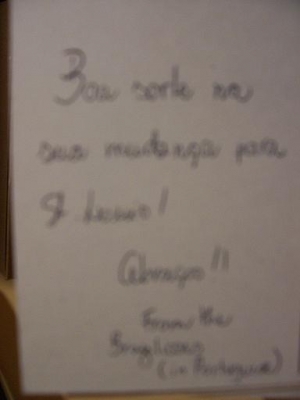 Boa sorte na
sua mudança para
St. Louis!
Abraços!!
From the
Brazilians
(in Portuguese)